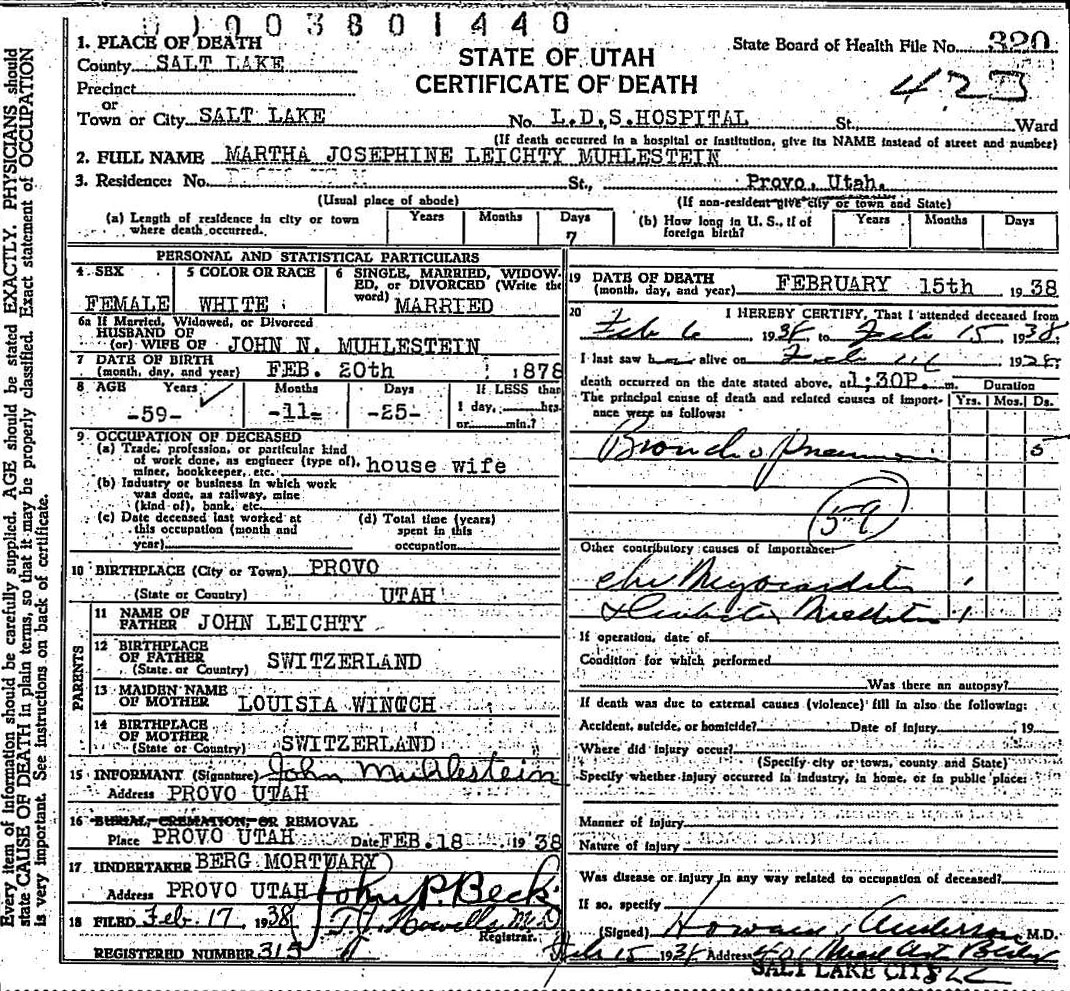 0003801440
1. PLACE OF DEATH
County SALT LAKE
Precinct
or
Town or City SALT LAKE
STATE OF UTAH
CERTIFICATE OF DEATH
State Board of Health File No. 320
423
No. L.D.S.HOSPITAL St. Ward
(If death occurred in a hospital or institution, give its NAME instead of street and number)
2. FULL NAME MARTHA JOSEPHINE LEICHTY MUHLESTEIN
3. Residence: No. St., Provo, Utah.
(Usual place of abode) (If non-resident give city or town and State)
(a) Length of residence in city or town where death occurred. Years Months Days 7
(b) How long in U. S., if of foreign birth? Years Months Days
PERSONAL AND STATISTICAL PARTICULARS
4 SEX FEMALE
5 COLOR OR RACE WHITE
6 SINGLE, MARRIED, WIDOWED, or DIVORCED (Write the word) MARRIED
6a If Married, Widowed, or Divorced
HUSBAND OF
(or) WIFE OF JOHN N. MUHLESTEIN
7 DATE OF BIRTH
(month, day, and year) FEB. 20th 1878
8 AGE Years Months Days If LESS than
-59- -11- -25- 1 day, hrs. or min.?
9 OCCUPATION OF DECEASED
(a) Trade, profession, or particular kind
of work done, as engineer (type of),
miner, bookkeeper, etc. house wife
(b) Industry or business in which work
was done, as railway, mine
(kind of), bank, etc.
(c) Date deceased last worked at
this occupation (month and
year)
(d) Total time (years)
spent in this
occupation
10 BIRTHPLACE (City or Town) PROVO
(State or Country) UTAH
PARENTS
11 NAME OF
FATHER JOHN LEICHTY
12 BIRTHPLACE
OF FATHER
(State or Country) SWITZERLAND
13 MAIDEN NAME
OF MOTHER LOUISIA WINTCH
14 BIRTHPLACE
OF MOTHER
(State or Country) SWITZERLAND
15 INFORMANT (Signature) John Muhlestein
Address PROVO UTAH
16 BURIAL, CREMATION, OR REMOVAL
Place PROVO UTAH Date FEB.18 1938
17 UNDERTAKER BERG MORTUARY
Address PROVO UTAH John P. Beck
18 FILED Feb. 17, 1938 M.D.
Registrar.
REGISTERED NUMBER 315
19 DATE OF DEATH
(month, day, and year) FEBRUARY 15th 1938
20 I HEREBY CERTIFY, That I attended deceased from
Feb 6 193 to Feb 15 1938.
I last saw h alive on Feb 192
death occurred on the date stated above, at 1:30P. m.
The principal cause of death and related causes of importance were as follows:
Duration
Yrs. Mos. Ds.
Broncho Pneumonia 5
59
Other contributory causes of importance:
chr Myocarditis 1
& Diabetes Mellitus 1
If operation, date of
Condition for which performed
Was there an autopsy?
If death was due to external causes (violence) fill in also the following:
Accident, suicide, or homicide? Date of injury , 19
Where did injury occur?
(Specify city or town, county and State)
Specify whether injury occurred in industry, in home, or in public place:
Manner of Injury
Nature of injury
Was disease or injury in any way related to occupation of deceased?
If so, specify
(Signed) Howard Anderson M.D.
Feb 15 193 Address Med Arts Bldg
SALT LAKE CITY
Every item of information should be carefully supplied. AGE should be stated EXACTLY. PHYSICIANS should
state CAUSE OF DEATH in plain terms, so that it may be properly classified. Exact statement of OCCUPATION
is very important. See instructions on back of certificate.